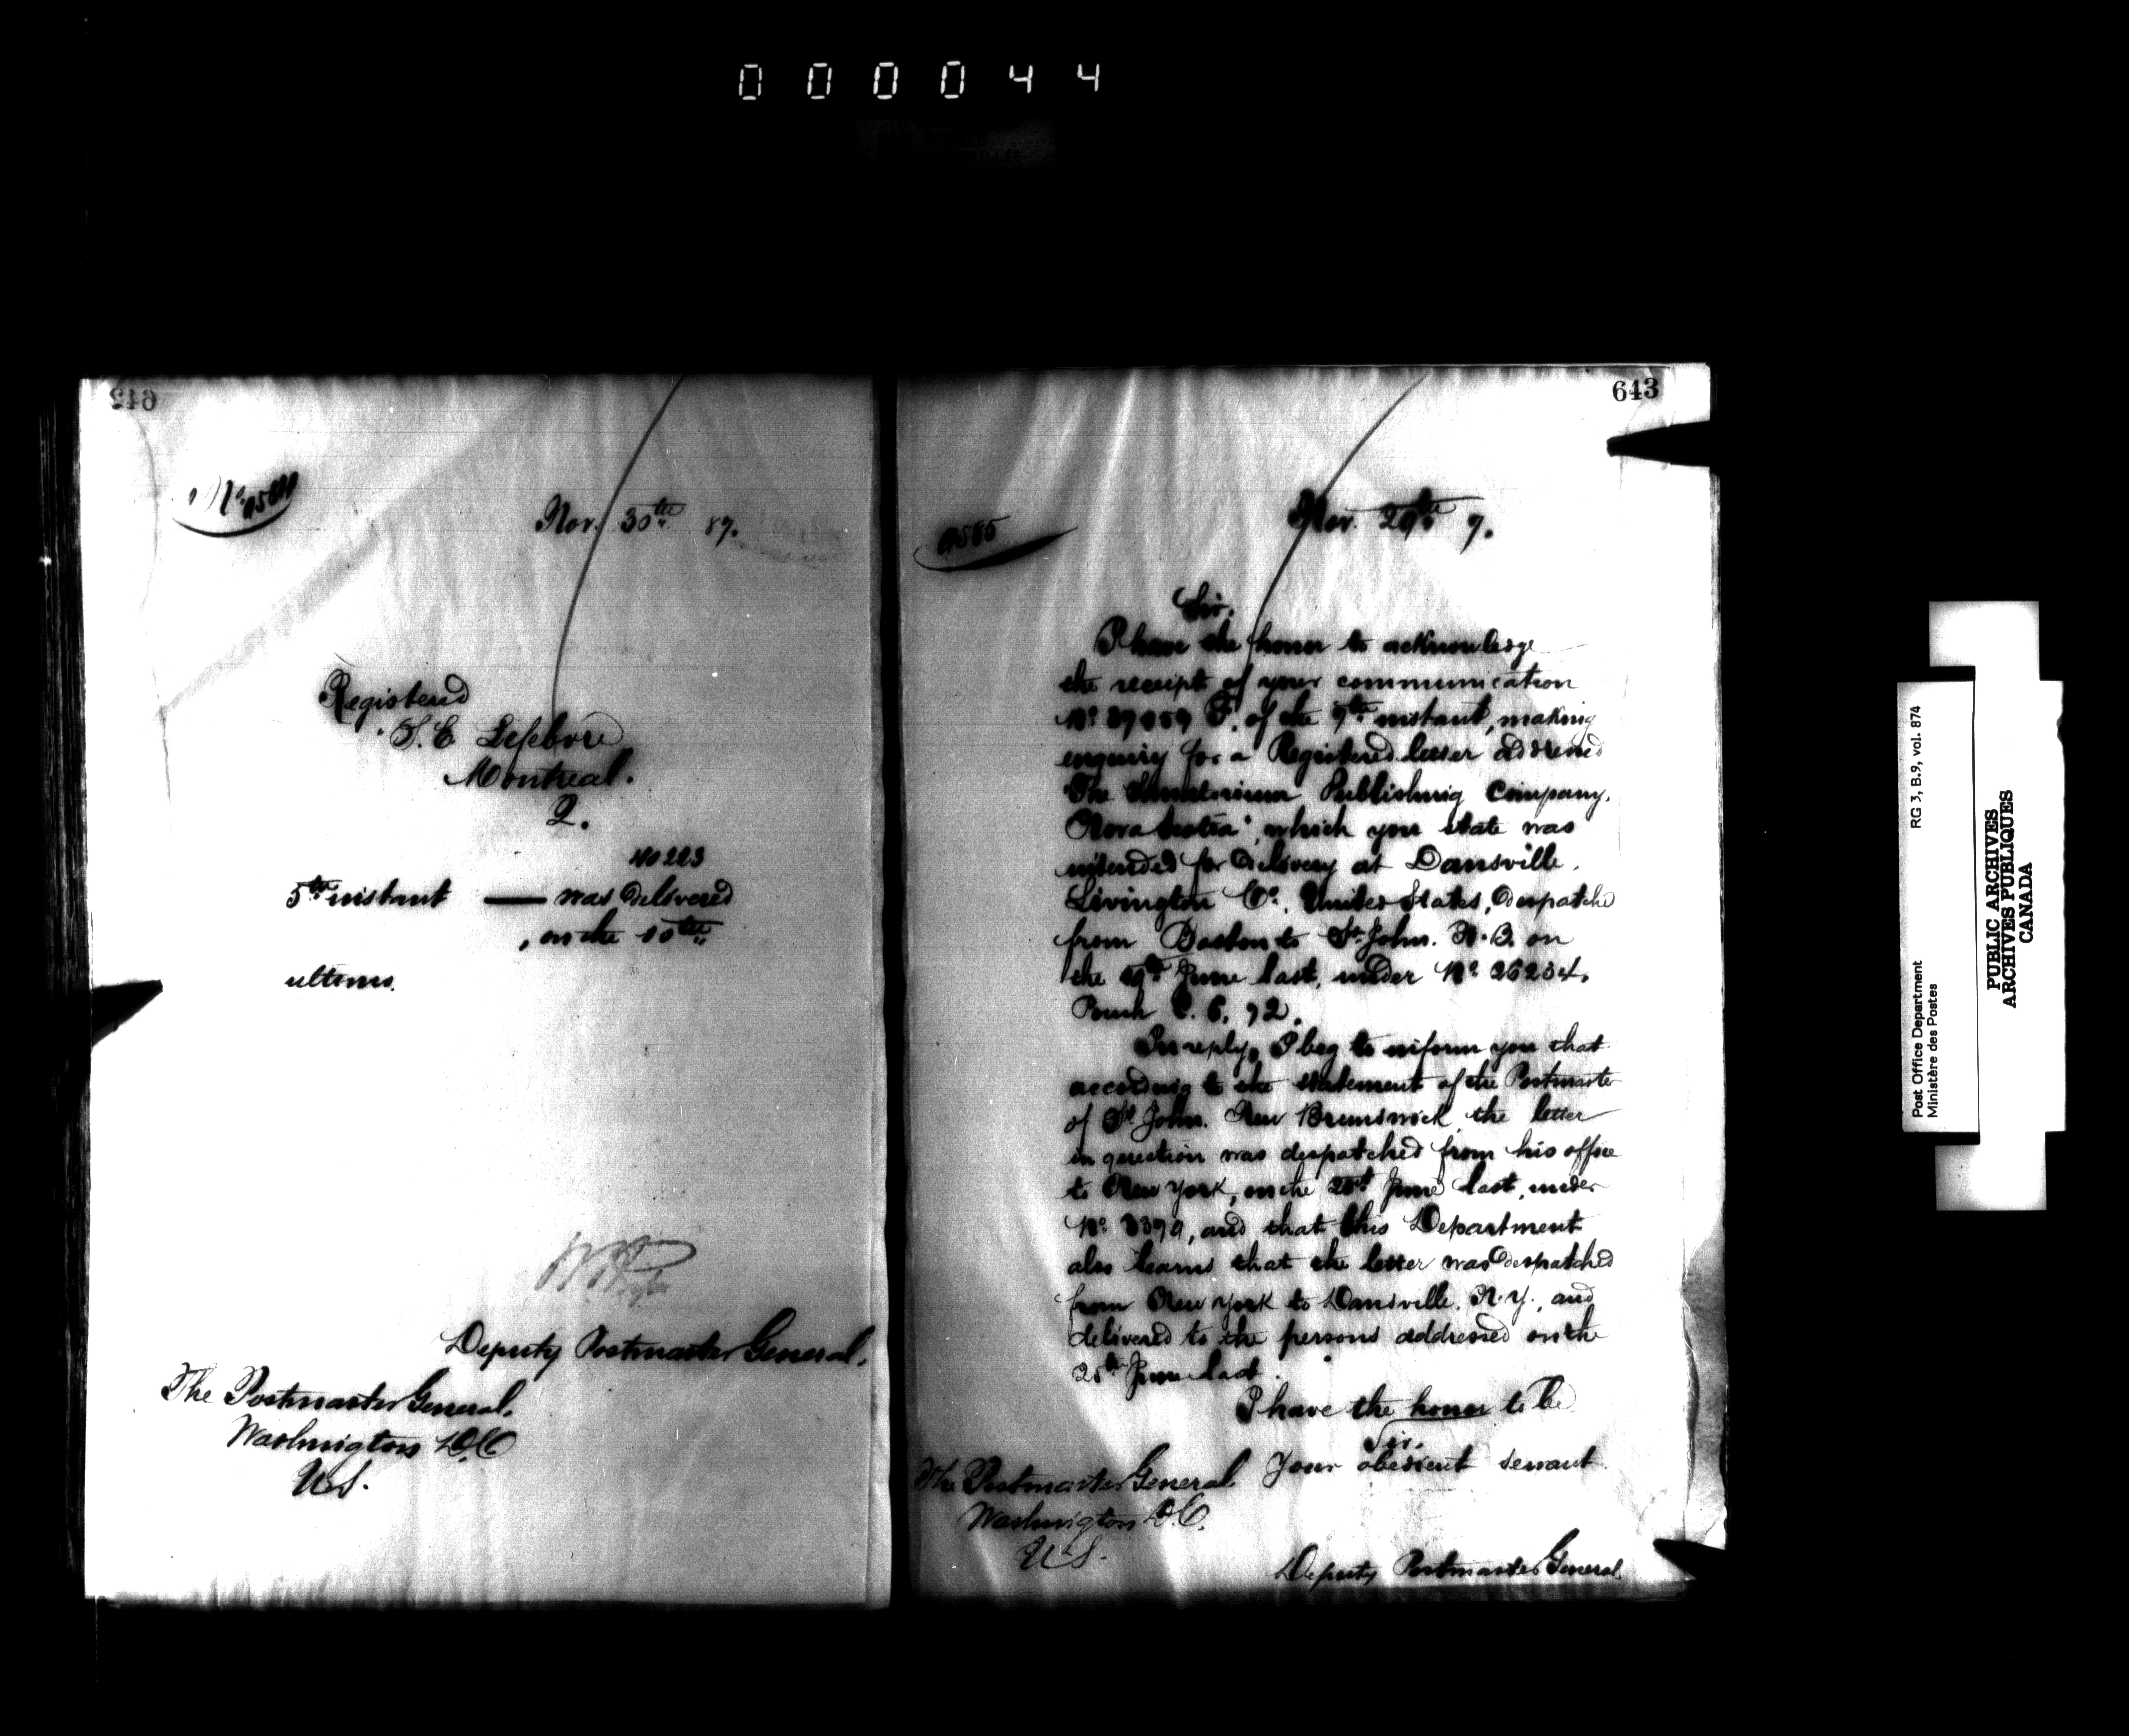 000044
642
Nov. 30th 87.
Registered
Lefebvre
Montreal.
2.
5th instant — was delivered
, on the 10th
ultimo.
Deputy Postmaster General.
The Postmaster General,
Washington D.C
U.S.
643
9585
Nov. 29th 7.
Sir,
I have the honor to acknowledge
the receipt of your communication
of the 7th instant, making
enquiry for a Registered letter addressed
"The Sanatorium Publishing Company,
Nova Scotia", which you state was
intended for delivery at Dansville,
Livington Co., United States, despatched
from Boston to St. John. N.B. on
the June last, under No. 26234,
Pouch C. 6, 92.
In reply, I beg to inform you that
according to the statement of the Postmaster
of St. John. New Brunswick, the letter
in question was despatched from his office
to New York, on the 21st June last, under
and that this Department
also learns that the letter was despatched
from New York to Dansville. N.Y., and
delivered to the persons addressed on the
25th June last.
I have the honor to be
Sir,
Your obedient servant
The Postmaster General
Washington D.C.
U.S.
Deputy Postmaster General
Post Office Department
Ministère des Postes
RG 3, B.9, vol. 874
PUBLIC ARCHIVES
ARCHIVES PUBLIQUES
CANADA